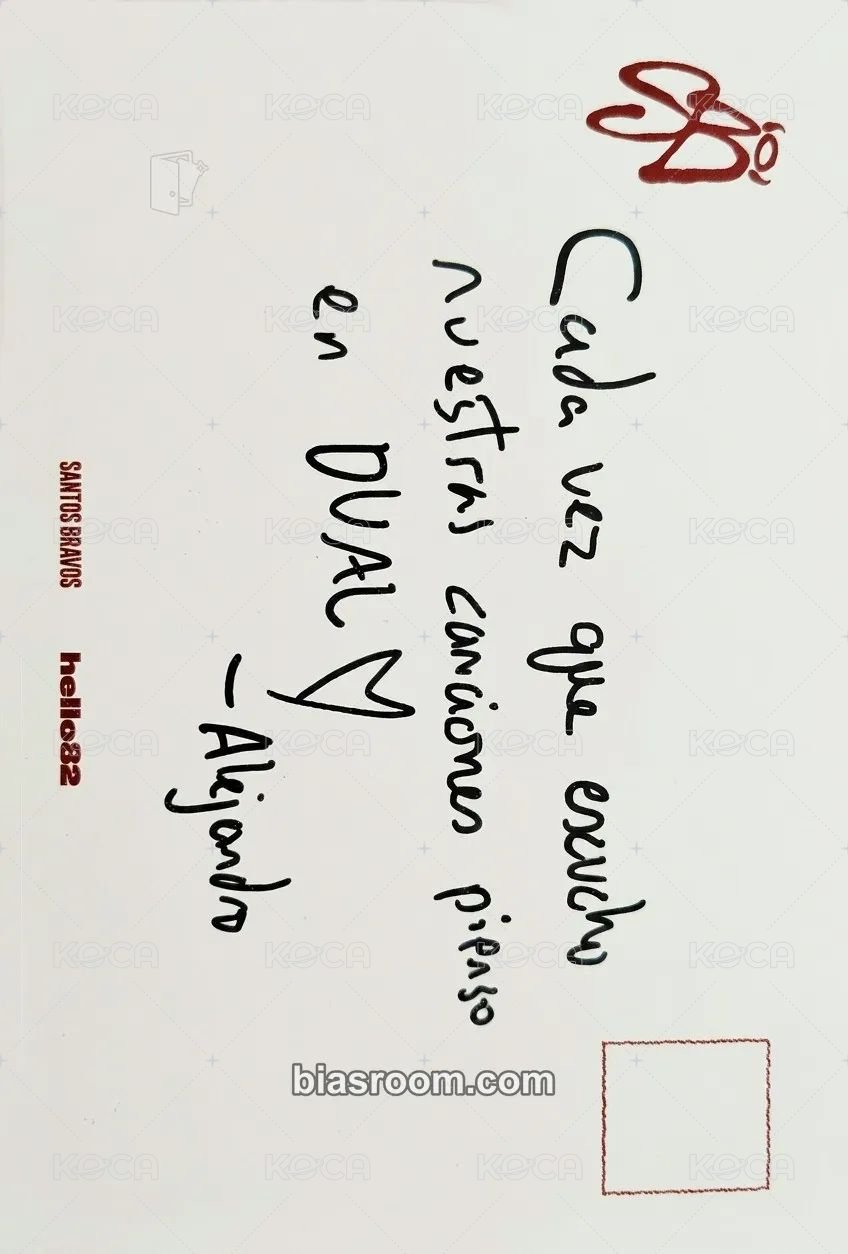 SB
Cada vez que escucho
nuestras canciones pienso
en DUAL
- Alejandro
SANTOS BRAVOS hello82
biasroom.com
KOCA